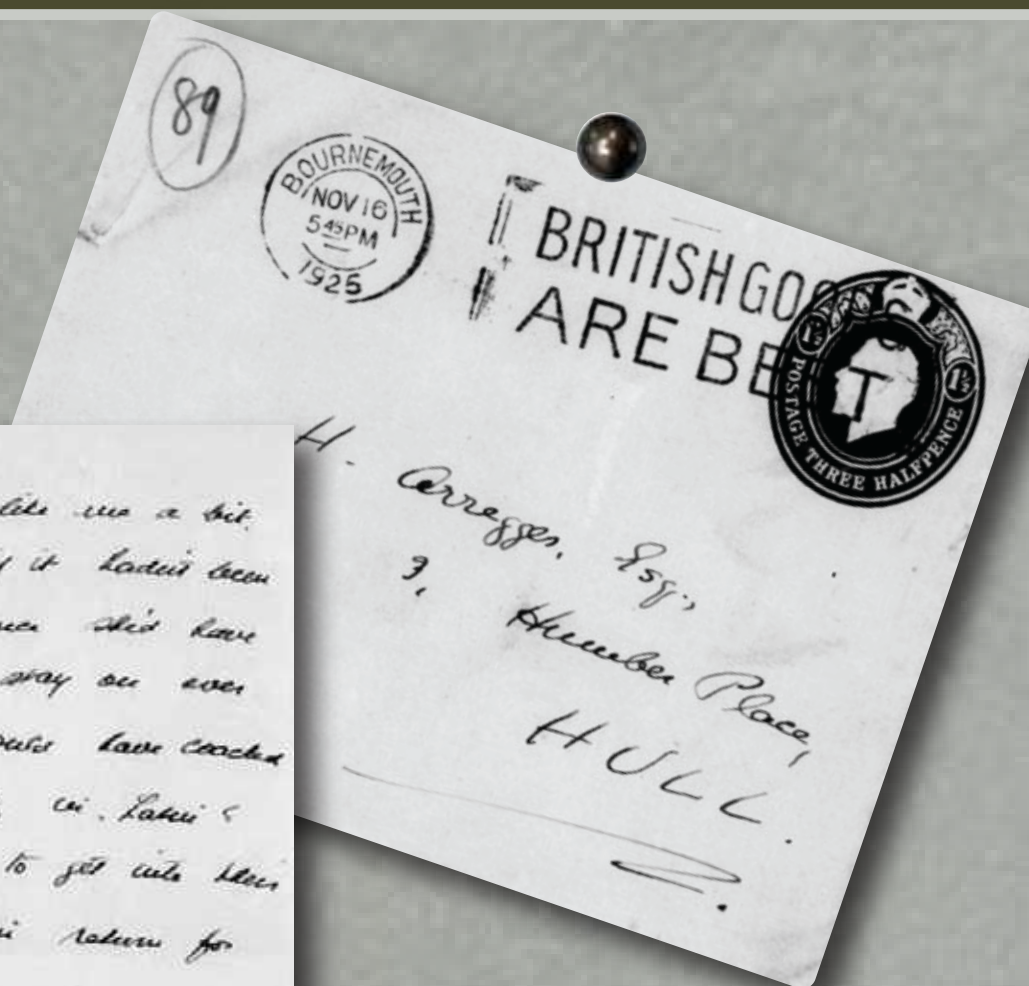 89
BOURNEMOUTH
NOV 16
5 45 PM
1925
BRITISH GOO
ARE BE T
POSTAGE THREE HALFPENCE
H. Arregger, Esq.,
9, Humber Place,
HULL.
like me a bit.
it hadn't been
she'd have
stay on over
have coached
in Latin &
to get into their
return for